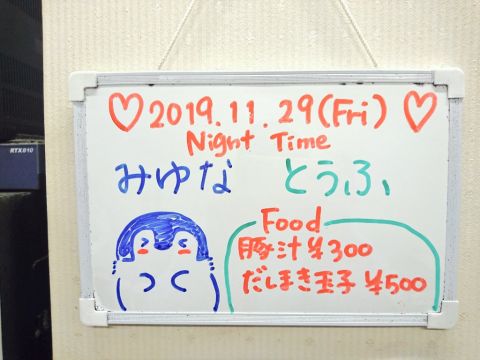 ♡ 2019.11.29(Fri) ♡
Night Time
みゆな とうふ
Food
豚汁 ¥300
だしまき玉子 ¥500
RTX810